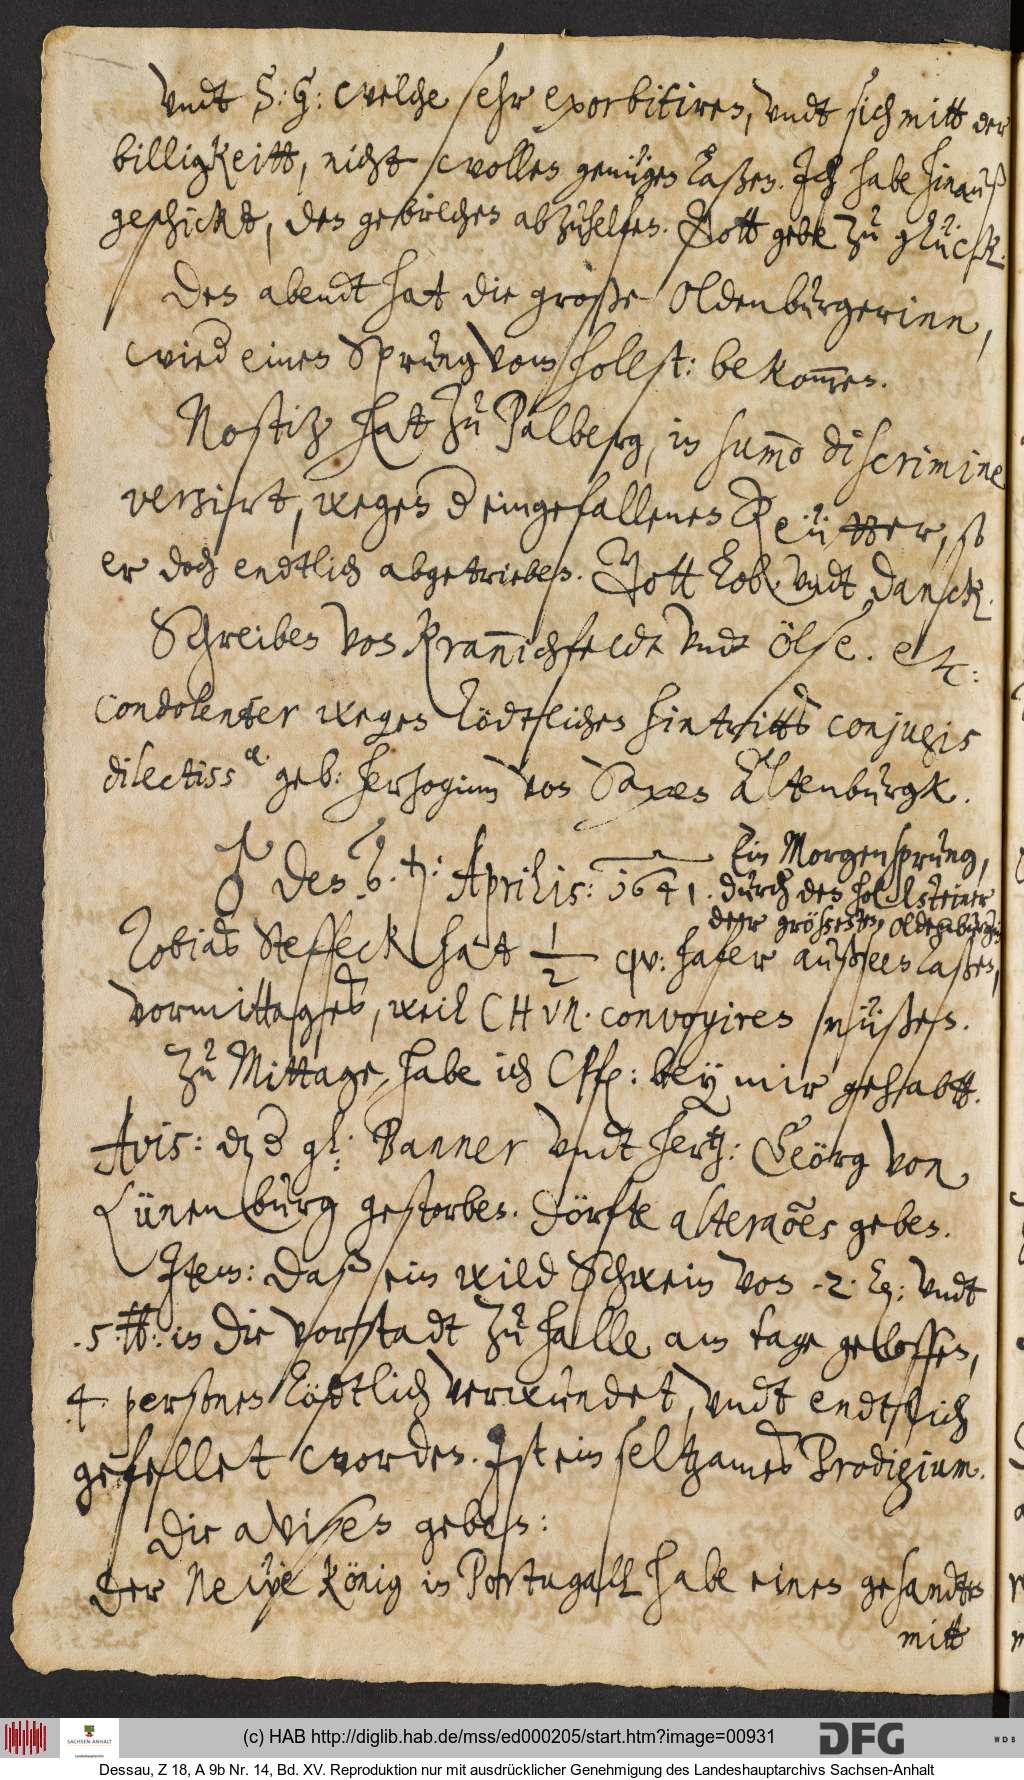 vndt S: G: welche sehr exorbitiren, vndt sich mitt der
billigkeitt, nicht wollen genügen laßen. Ich habe hinauß
geschickt, den gebrechen abzuhelfen. Gott gebe zu glück.
Den abendt hat die große Oldenburgerinn,
wied einen Sprung vom hollst: bekom̅en.
Nostitz hat zu Palberg, in sum̅o discrimine
versirt, wegen d eingefallenen Reütter, so
er doch endtlich abgetrieben. Gott lob vndt danck.
Schreiben von Kran̅ichfeldt vndt Ölße. etc:
condolenter wegen tödtlichen hintritts conjugis
dilectiss.ae geb: hertzoginn von Saxen Altenburgk.
♂ den 6. t: Aprilis: 1641.
Ein Morgensprung,
durch den hollsteiner
deer größesten, Oldenburgerin
Tobias Steffeck hat 1/2 qv: hafer außseen laßen,
vormittages, weil CHVR. convoyiren müßen.
Zu Mittage, habe ich Cpfe: bey mir gehabtt.
Avis: dz d gl: Banner vndt hertz: Geörg von
Lünenburg gestorben. Dörfte alterao̅es geben.
Item: daß ein wild Schwein von .2. Eln: vndt
.5. ₶: in die vorstadt zu halle am tage geloffen,
4 personen tödtlich verwundet, vndt endtlich
gefellet worden. Ist ein seltzames Prodigium.
Die avisen geben:
Der Neüe König in Portugall habe einen gesandten
mitt
(c) HAB http://diglib.hab.de/mss/ed000205/start.htm?image=00931
SACHSEN-ANHALT
Landeshauptarchiv
DFG
WDB
Dessau, Z 18, A 9b Nr. 14, Bd. XV. Reproduktion nur mit ausdrücklicher Genehmigung des Landeshauptarchivs Sachsen-Anhalt